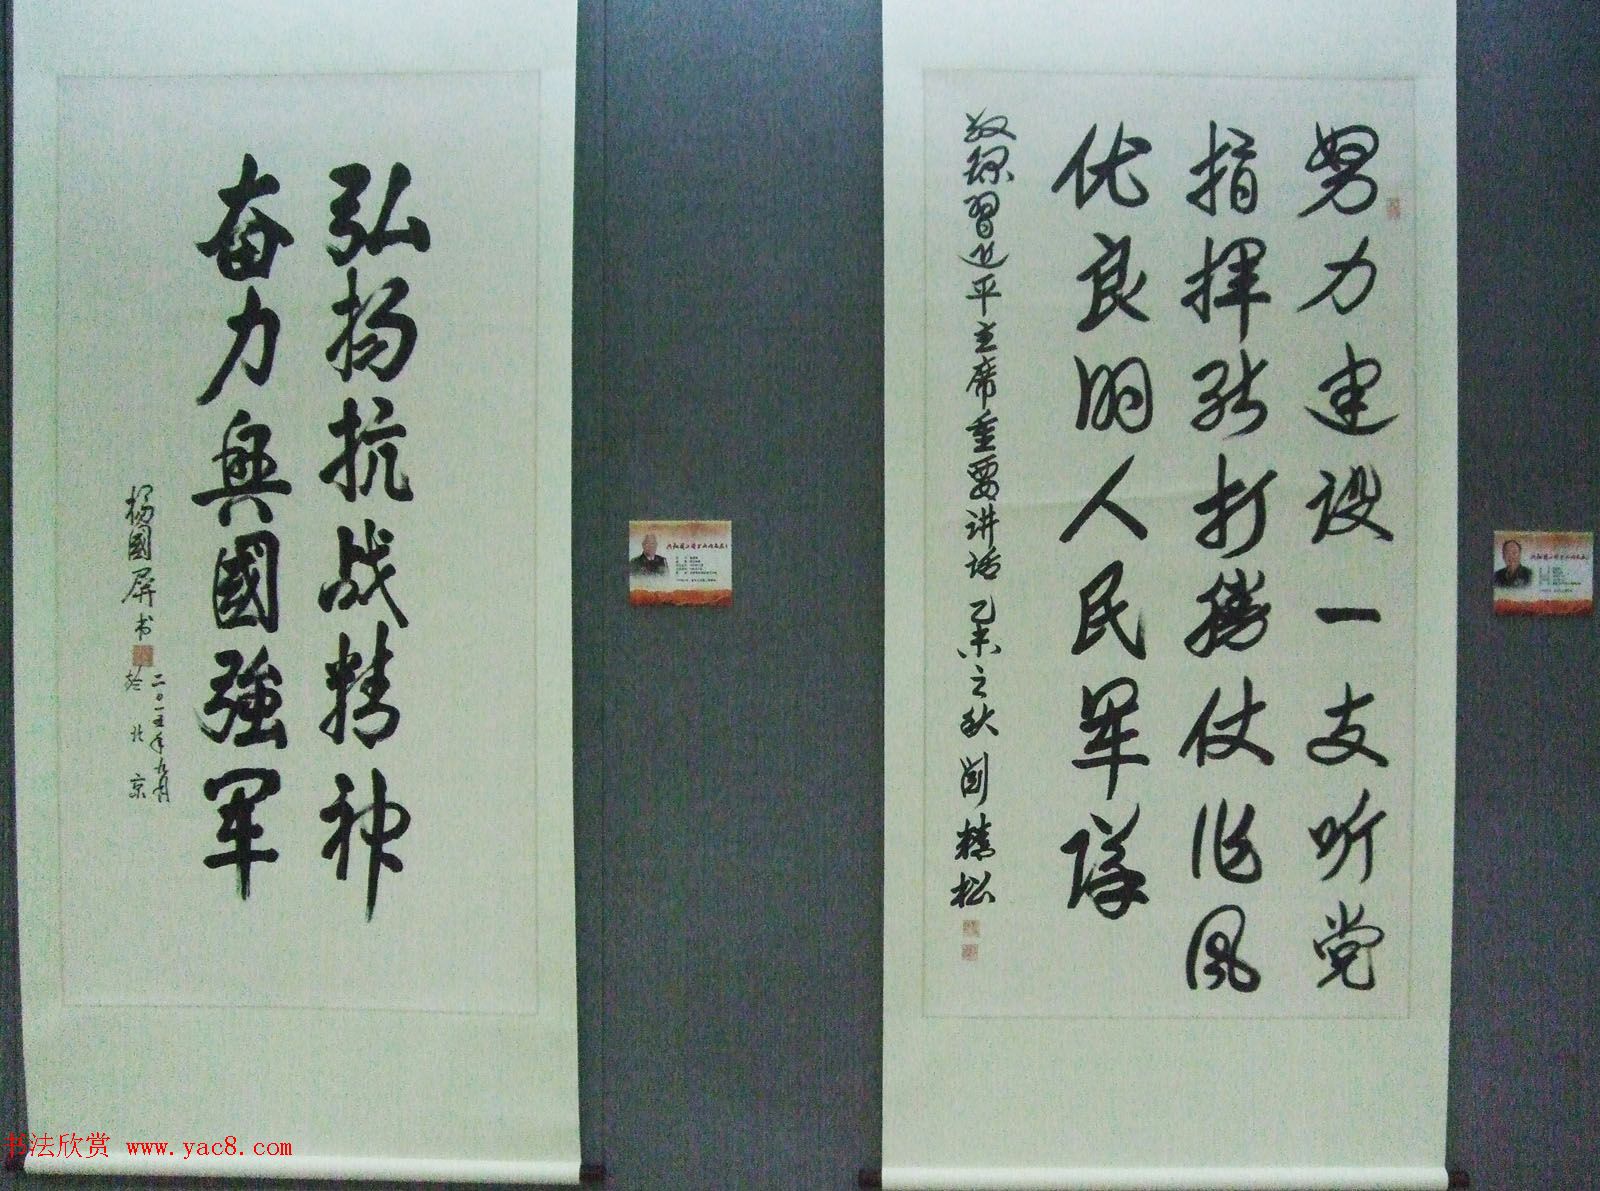 努力建设一支听党
指挥能打胜仗作风
优良的人民军队
敬录习近平主席重要讲话 乙未之秋 刘精松
弘扬抗战精神
奋力興國強军
楊國屏书 於北京
二〇一五年九月
书法欣赏 www.yac8.com